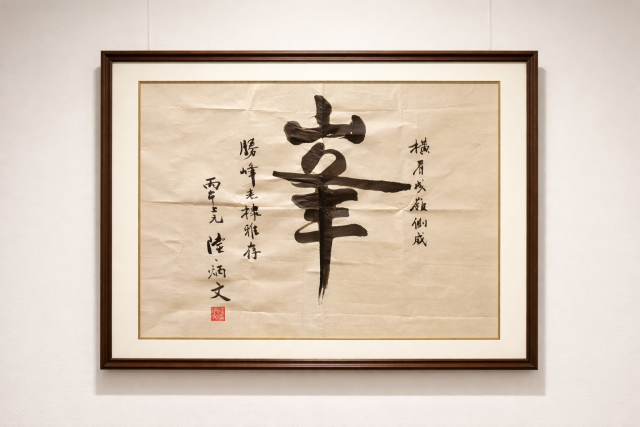 橫看成嶺側成
峯
勝峰老棣雅存
丙午上元 陸炳文